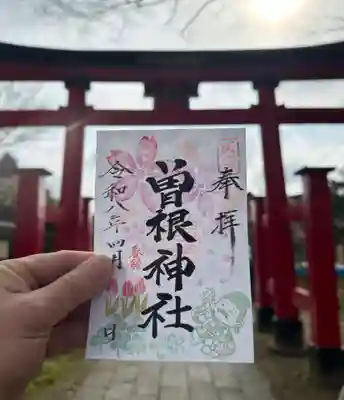 奉拝
曽根神社
令和八年四月 日